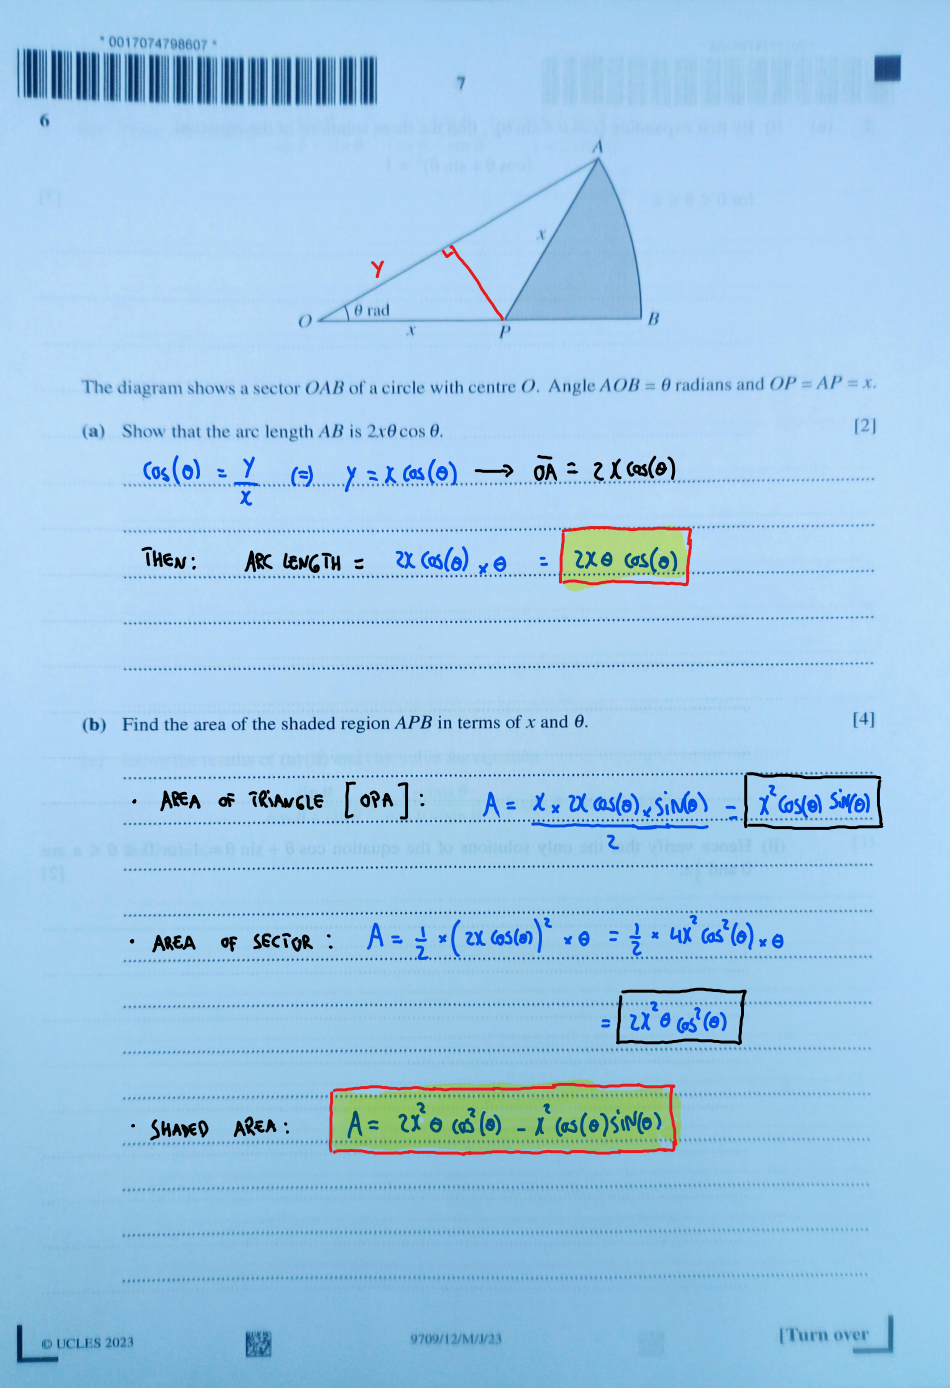 * 0017074798607 *
7
6
A
x
y
θ rad
O
x
P
B
The diagram shows a sector OAB of a circle with centre O. Angle AOB = θ radians and OP = AP = x.
(a) Show that the arc length AB is 2xθ cos θ. [2]
cos(θ) = y/x (=) y = x cos(θ) → OA̅ = 2x cos(θ)
THEN: ARC LENGTH = 2x cos(θ) × θ = 2xθ cos(θ)
(b) Find the area of the shaded region APB in terms of x and θ. [4]
· AREA OF TRIANGLE [OPA] : A = x × 2x cos(θ) × sin(θ) / 2 = x² cos(θ) sin(θ)
· AREA OF SECTOR : A = 1/2 × (2x cos(θ))² × θ = 1/2 × 4x² cos²(θ) × θ
= 2x² θ cos²(θ)
· SHADED AREA : A = 2x² θ cos²(θ) - x² cos(θ) sin(θ)
© UCLES 2023
9709/12/M/J/23
[Turn over